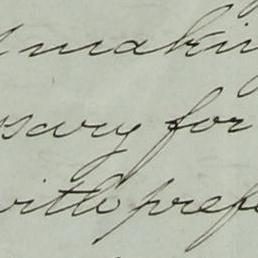 making
ssary for
with prefe